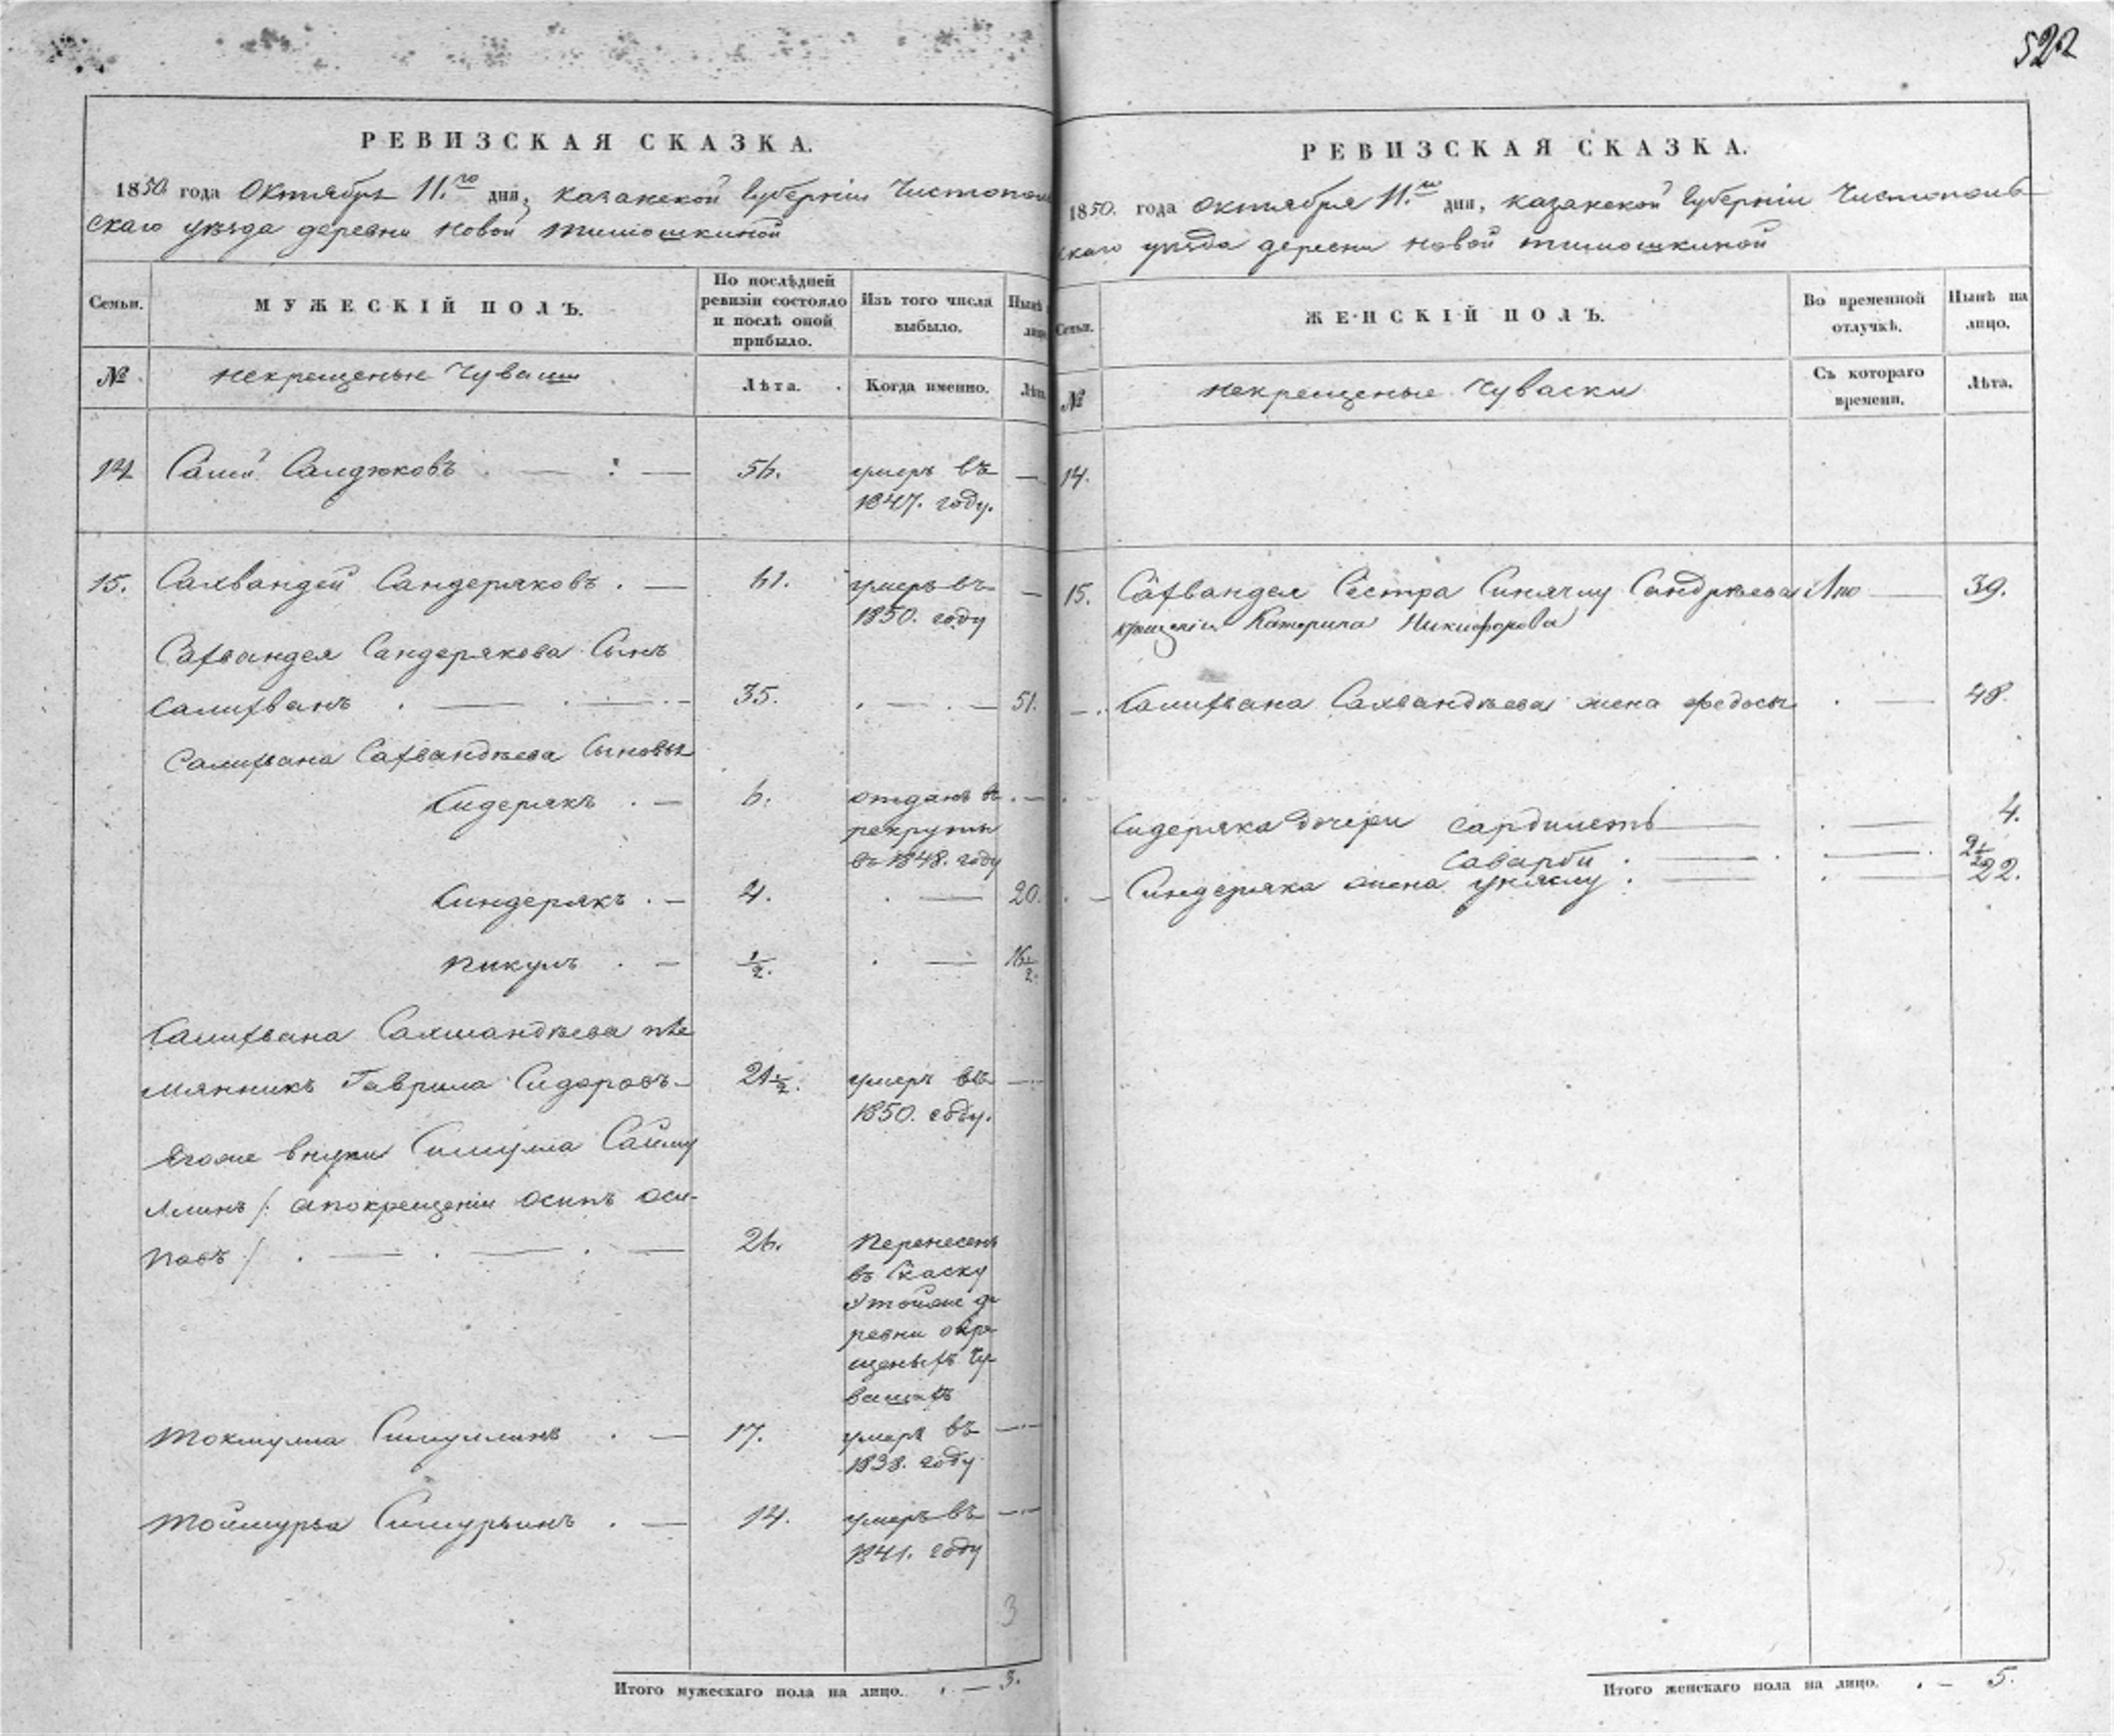 522
РЕВИЗСКАЯ СКАЗКА.
1850 года Октября 11.го дня, Казанской Губерніи Чистополь
скаго уѣзда деревни Новой Тимошкиной
Семьи.
МУЖЕСКІЙ ПОЛЪ.
По послѣдней
ревизіи состояло
и послѣ оной
прибыло.
Изъ того числа
выбыло.
Нынѣ
лицо
№
некрещеные Чуваши
Лѣта.
Когда именно.
Лѣта
14 Самѣй Салдюковъ 56. умеръ въ —
1847. году.
15. Сахвандей Сандеряковъ. — 61. умеръ въ —
1850. году
Сахвандея Сандерякова Сынъ
Салихванъ 35. 51.
Салихвана Сахвандѣева Сыновья
Сидерякъ . — 6. отданъ в
рекруты
въ 1848. году
Синдерякъ . — 4. 20.
Пикулъ . — 1/2. 16 1/2.
Салихвана Сахвандѣева пле
мянникъ Гаврила Сидоровъ 21 1/2. умеръ въ
1850. году.
Ягоже внуки
/: апокрещеніи Осипъ Оси-
повъ / 26. Перенесенъ
въ Скаску
этойже де
ревни окре
щеныхъ Чу-
вашахъ
17. умеръ въ
1838. году
14. умеръ въ
1841. году
3
Итого мужескаго пола на лицо. . — 3.
РЕВИЗСКАЯ СКАЗКА.
1850. года Октября 11.го дня, Казанской Губерніи Чистополь
скаго уѣзда деревни Новой Тимошкиной
Семьи.
ЖЕНСКІЙ ПОЛЪ.
Во временной
отлучкѣ.
Нынѣ на
лицо.
№
некрещеные Чуваски
Съ котораго
времени.
Лѣта.
14.
15. Сахвандея Сестра Синячму Сандрѣева Апо — 39.
крещеніи Катерина Никифорова
Салихвана Сахвандѣева жена Федосья . — 48.
Сидеряка дочери Сардиметь 4.
Саварби . 2 1/2
Синдеряка жена Унясму . 22.
Итого женскаго пола на лицо. . — 5.